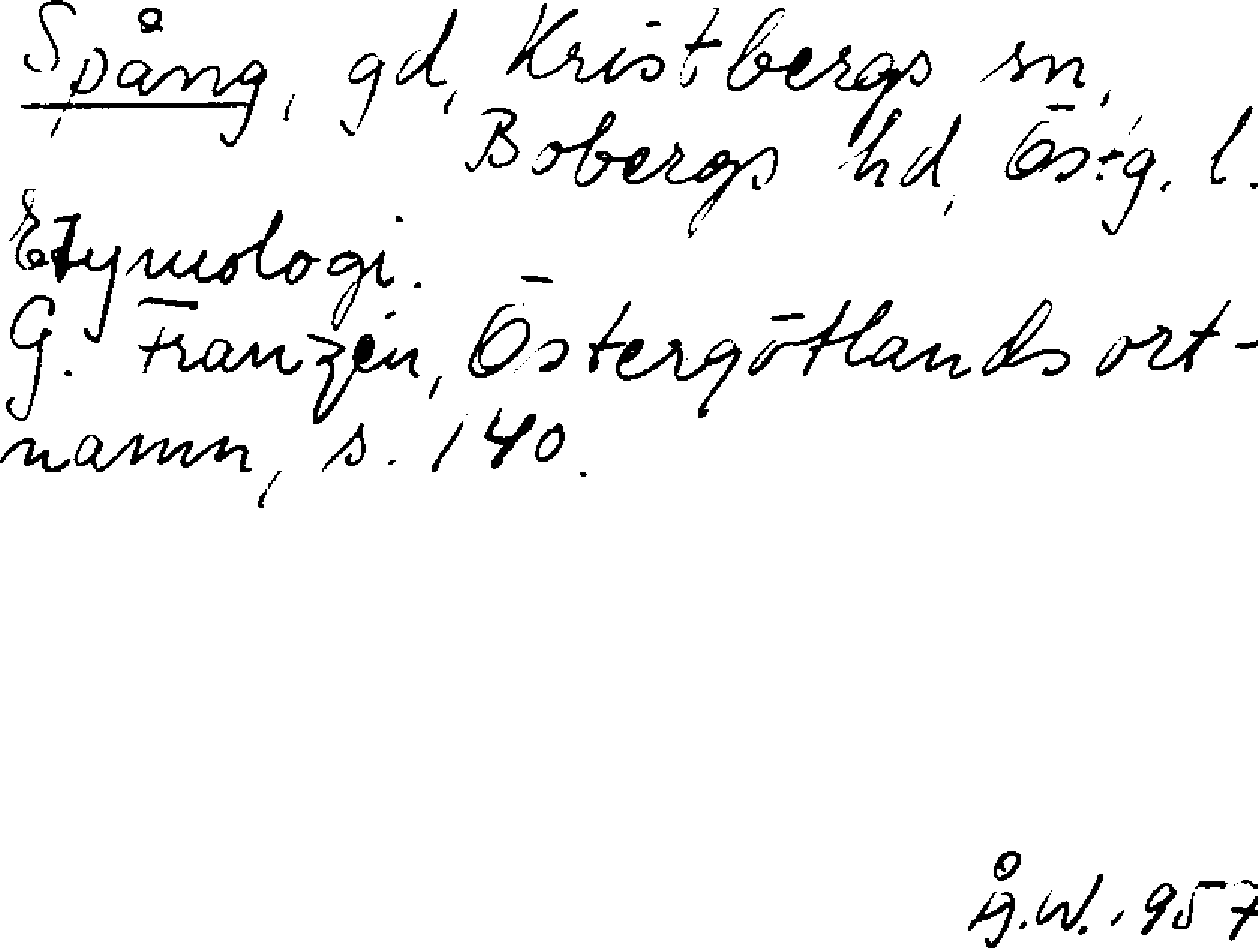 Spång, gd, Kristbergs sn,
Bobergs hd, Östg. l.
Etymologi.
G. Franzén, Östergötlands ort-
namn, s. 140.
Å.W. 957